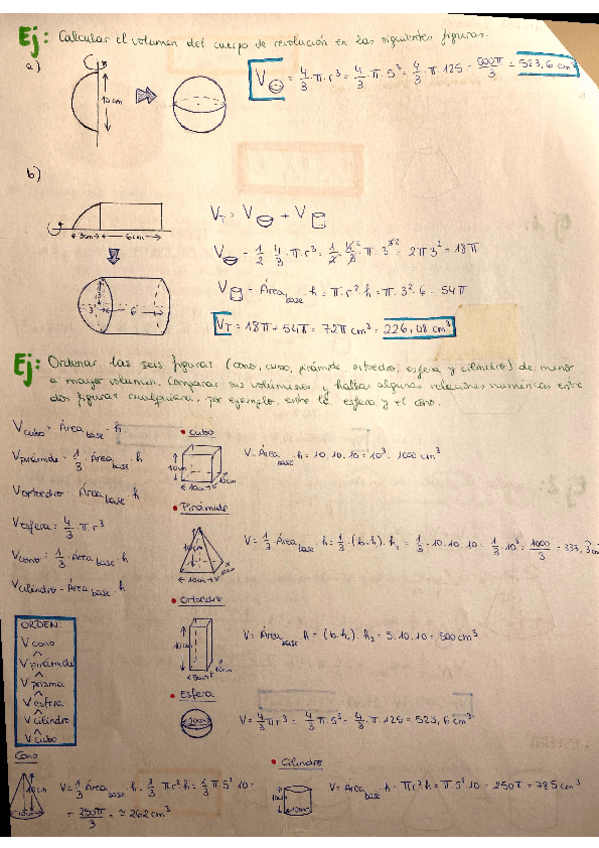 Ej: Calcular el volumen del cuerpo de revolución en las siguientes figuras.
a)
10cm
V = 4/3 · π · r³ = 4/3 · π · 5³ = 4/3 · π · 125 = 500π/3 = 523,6 cm³
b)
3cm 6cm
V_T = V + V
V = 1/2 · 4/3 · π · r³ = 1/2 · 4/3 · π · 3³ = 2π3² = 18π
V = Área base · h = π · r² · h = π · 3² · 6 = 54π
3 6
V_T = 18π + 54π = 72π cm³ = 226,08 cm³
Ej: Ordenar las seis figuras (cono, cubo, pirámide, ortoedro, esfera y cilindro) de menor
a mayor volumen. Comparar sus volúmenes y hallar algunas relaciones numéricas entre
dos figuras cualquiera. por ejemplo, entre la esfera y el cono.
V cubo = Área base · h
V pirámide = 1/3 · Área base · h
V ortoedro = Área base · h
V esfera = 4/3 · π · r³
V cono = 1/3 · Área base · h
V cilindro = Área base · h
• Cubo
10cm 10cm 10cm
V = Área base · h = 10 · 10 · 10 = 10³ = 1000 cm³
• Pirámide
10cm 10cm
V = 1/3 · Área base · h = 1/3 · (b · h₁) · h₂ = 1/3 · 10 · 10 · 10 = 1/3 · 10³ = 1000/3 = 333,3 cm
• Ortoedro
10cm 5cm
V = Área base · h = (b · h₁) · h₂ = 5 · 10 · 10 = 500 cm³
• Esfera
V = 4/3 π r³ = 4/3 π · 5³ = 4/3 · π · 125 = 523,6 cm³
ORDEN:
V cono
^
V pirámide
^
V prisma
^
V esfera
^
V cilindro
^
V cubo
Cono
10cm 10cm
V = 1/3 Área base · h = 1/3 π r² · h = 1/3 π 5² 10 =
= 250π/3 = ≈ 262 cm³
• Cilindro
10cm 10cm
V = Área base · h = π r² · h = π 5² · 10 = 250π = 785 cm³